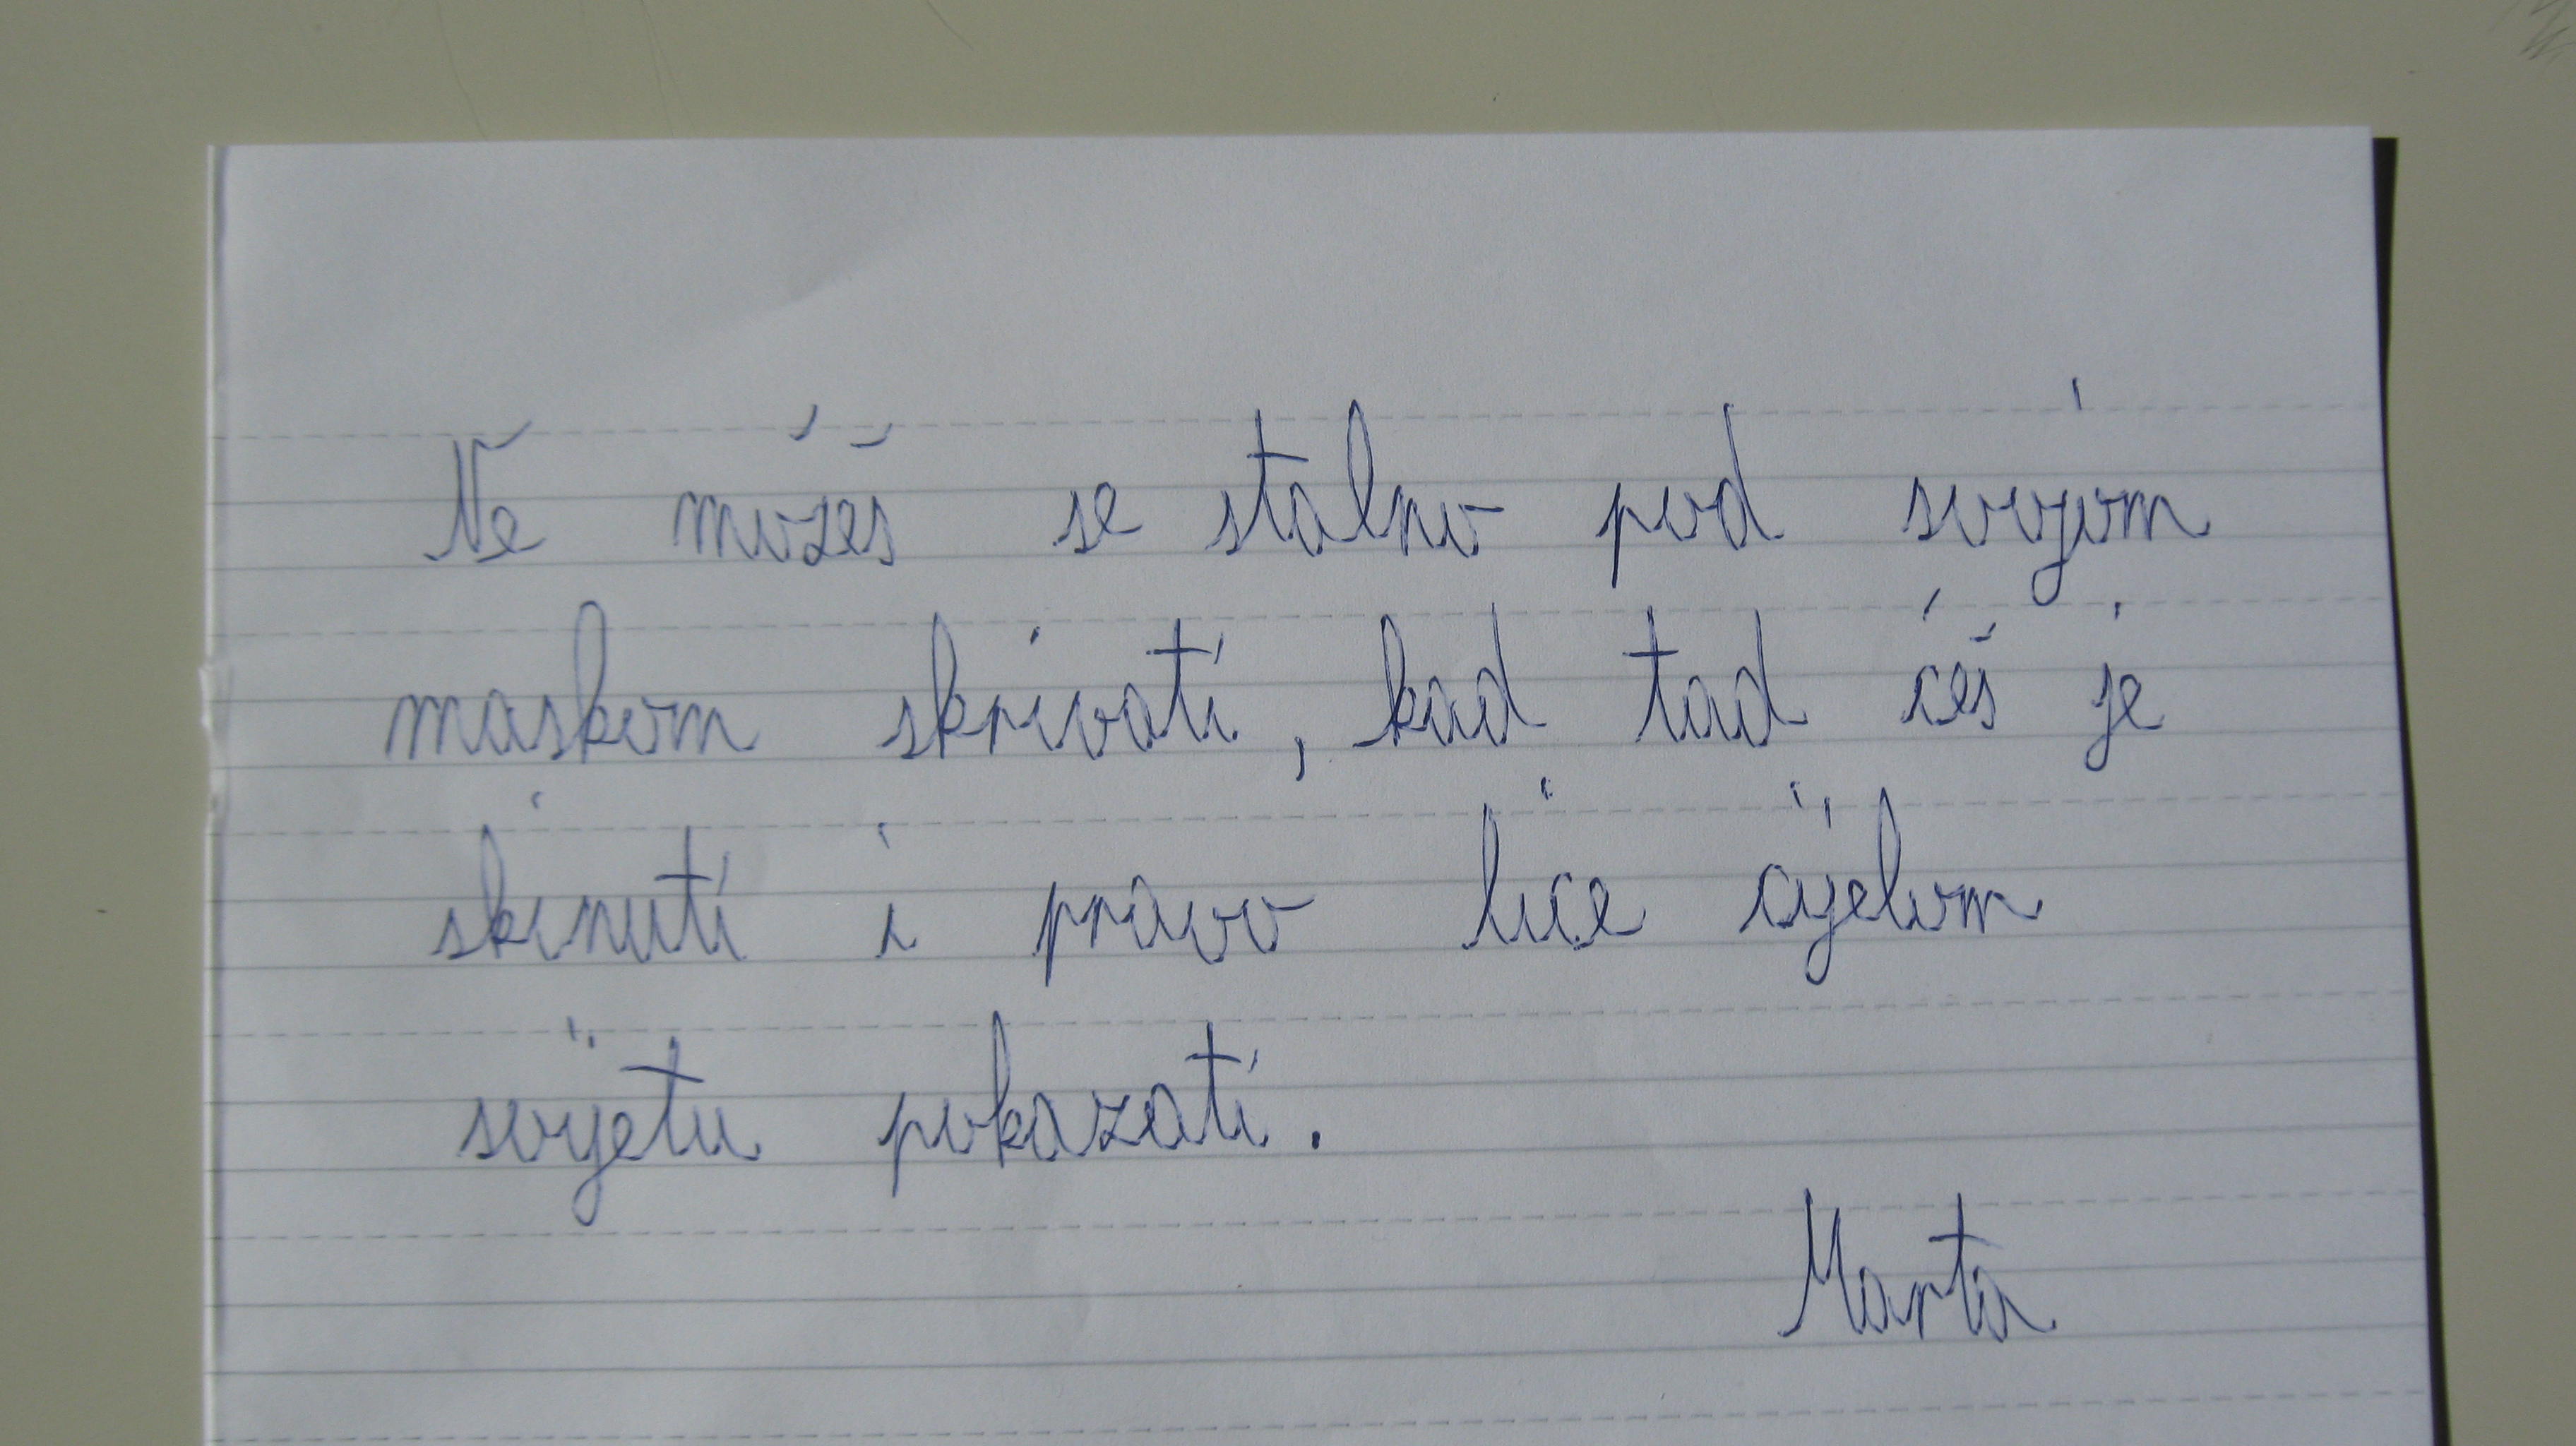 Ne možeš se stalno pod svojom
maskom skrivati, kad tad ćeš je
skinuti i pravo lice cijelom
svijetu pokazati.
Marta